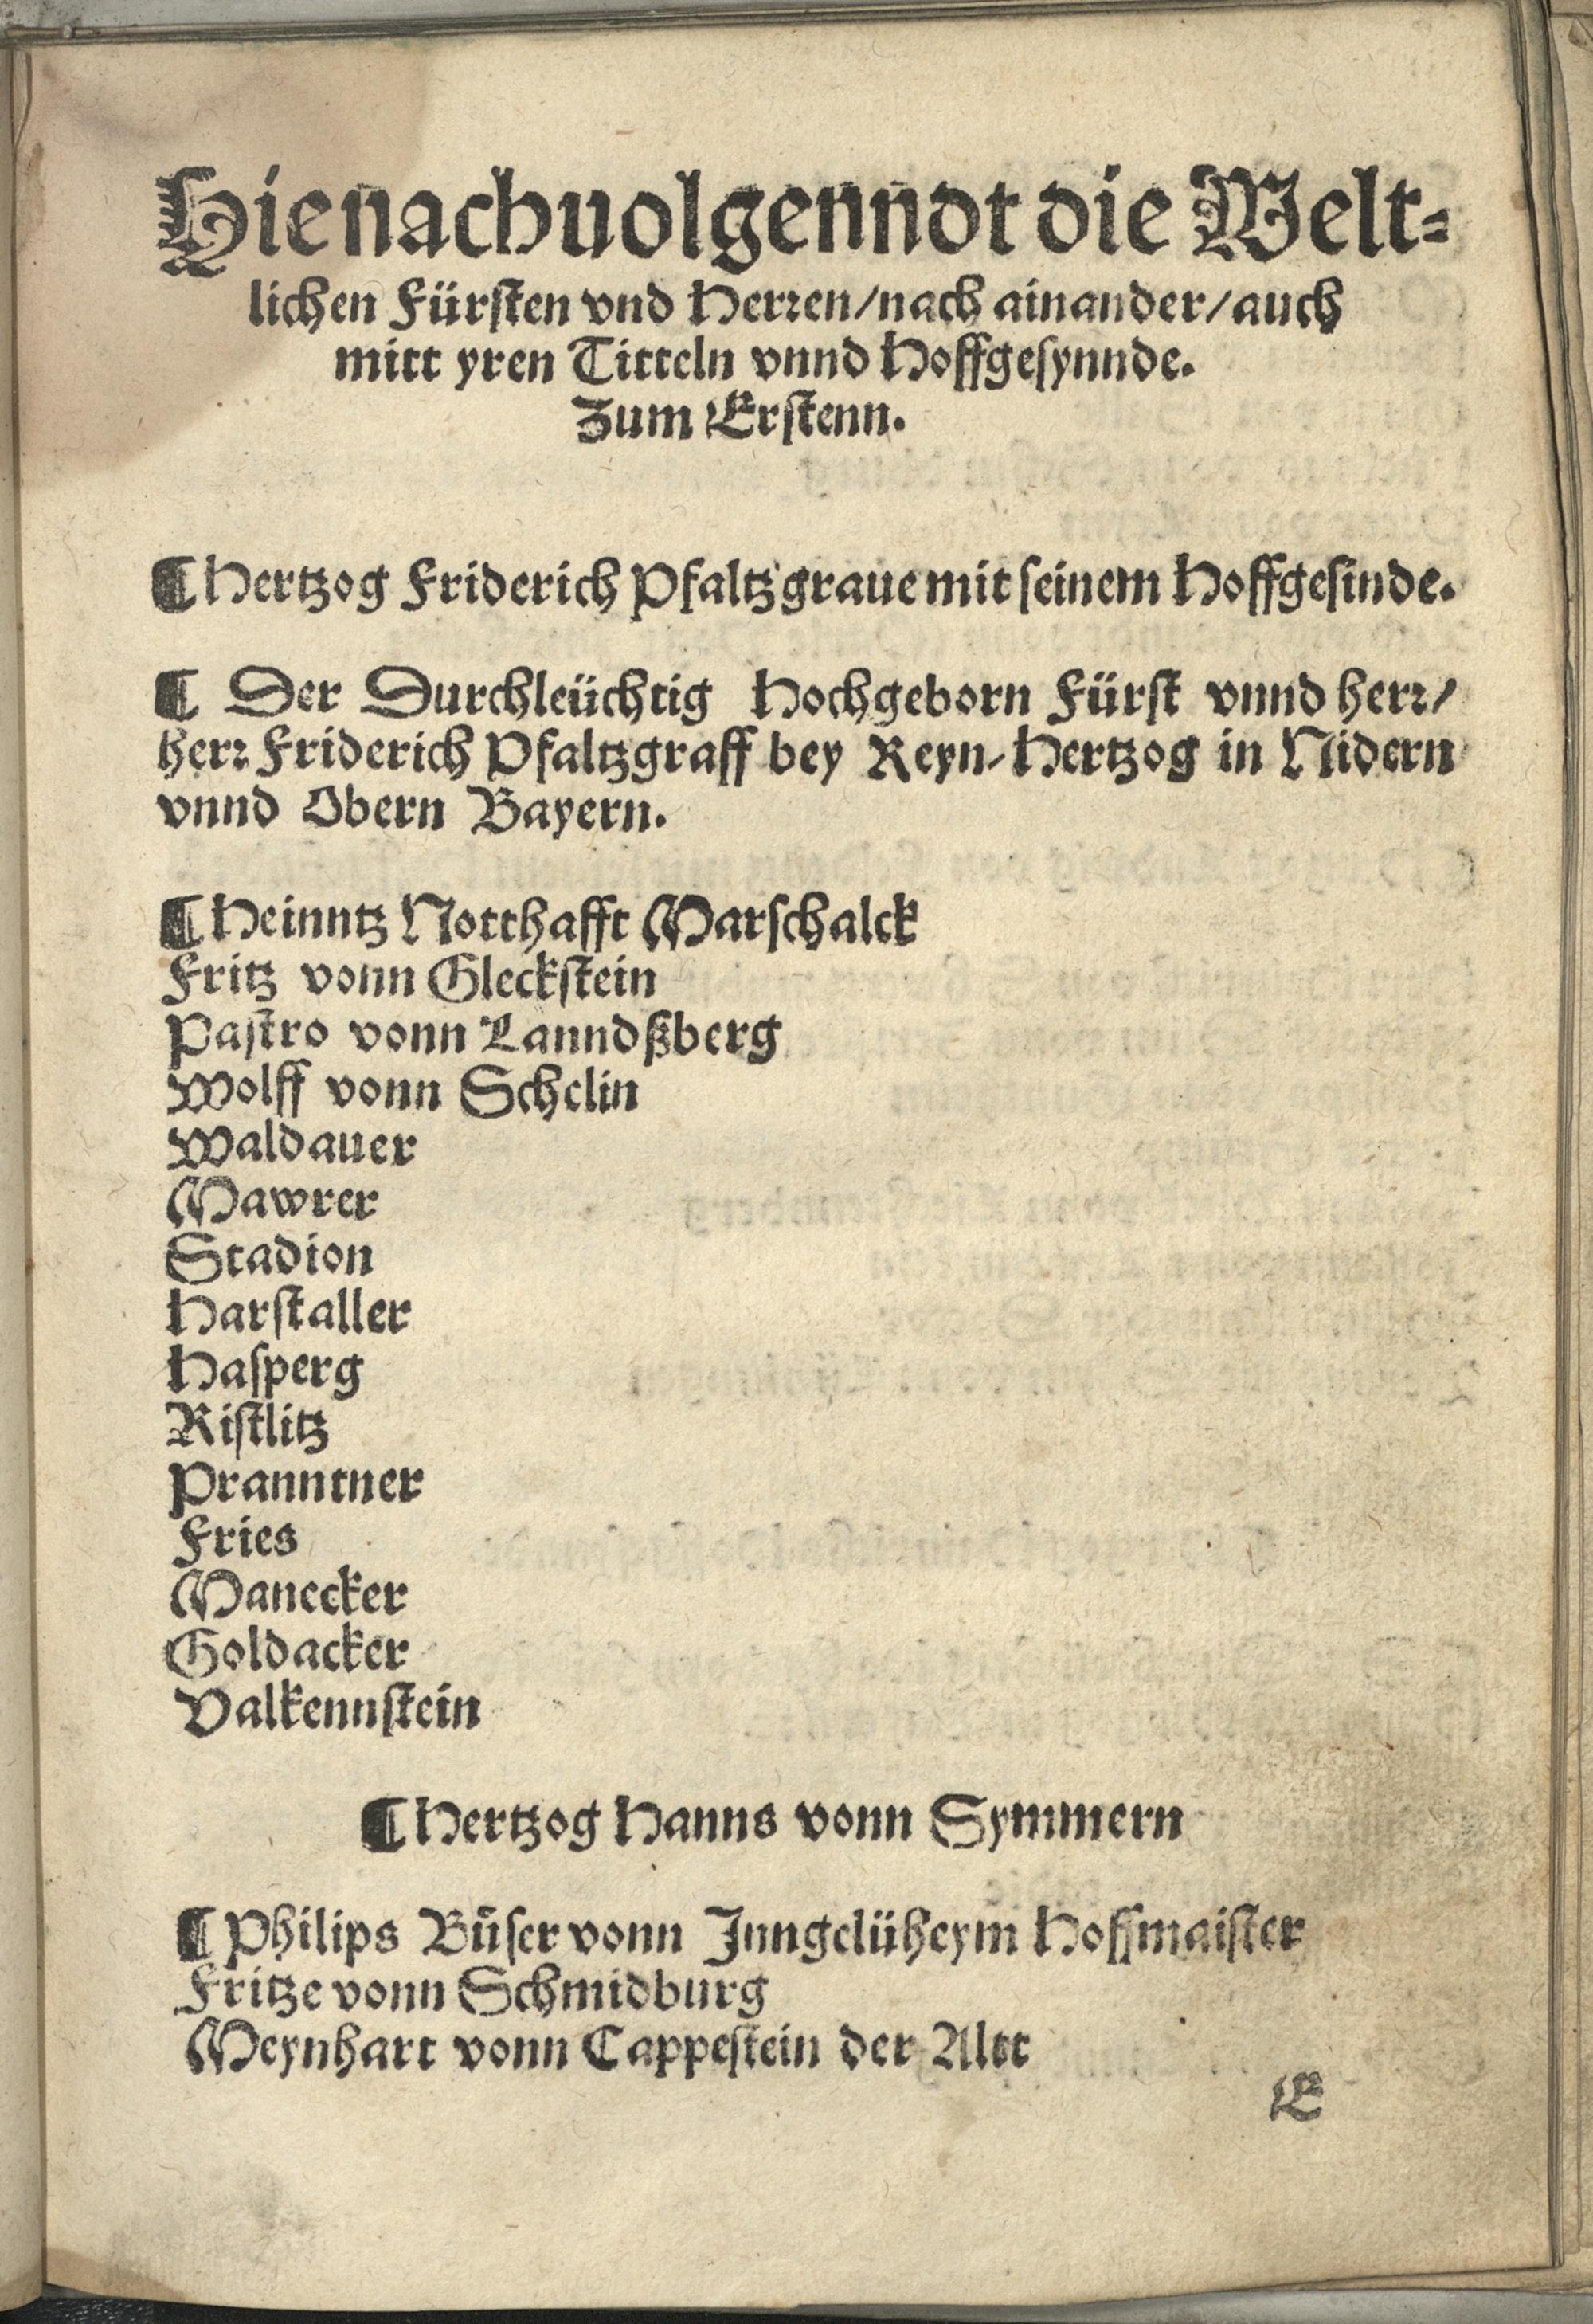 Hienachuolgenndt die Welt⸗
lichen Fürſten vnd Herꝛen/nach ainander/auch
mitt yren Titteln vnnd Hoffgeſynnde.
Zum Erſtenn.
¶ Hertzog Friderich Pfaltzgraue mit ſeinem Hoffgeſinde.
¶ Der Durchleüchtig Hochgeborn Fürſt vnnd herꝛ/
herꝛ Friderich Pfaltzgraff bey Reyn/Hertzog in Nidern
vnnd Obern Bayern.
¶ Heinntz Notthafft Marſchalck
Fritz vonn Gleckſtein
Paſtro vonn Lanndßberg
Wolff vonn Schelin
Waldauer
Mawrer
Stadion
Harſtaller
Haſperg
Riſtlitz
Pranntner
Fries
Manecker
Goldacker
Valkennſtein
¶ Hertzog Hanns vonn Symmern
¶ Philips Bůſer vonn Jnngelüheym Hoffmaiſter
Fritze vonn Schmidburg
Meynhart vonn Cappeſtein der Altt
E